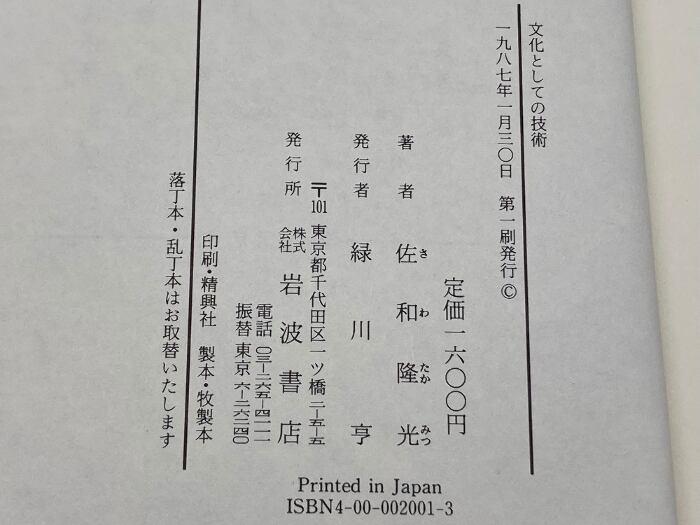 文化としての技術
一九八七年一月三〇日　第一刷発行©
定価一六〇〇円
著者　佐和隆光
さわたかみつ
発行者　緑川亨
〒101　東京都千代田区一ツ橋二-五-五
発行所　株式会社　岩波書店
電話　〇三-二六五-四一一一
振替　東京　六-二六二四〇
印刷・精興社　製本・牧製本
落丁本・乱丁本はお取替いたします
Printed in Japan
ISBN4-00-002001-3